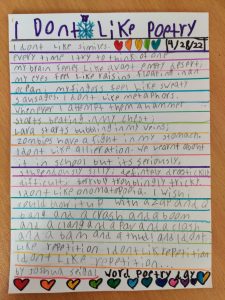 I Dont Like Poetry
I dont like similes.
9/28/22
every time I try to think of one
my brain feels like a vast empty desert,
my eyes feel like raisins floating in an
ocean, my fingers feel like sweaty
sausages. I dont like metaphors.
whenever I attempt them a hammer
starts beating in my chest,
lava starts bubbling in my veins,
zombies have a fight in my stomach.
I dont like alliteration. We learnt about
it in school but its seriously,
stupendously silly, definitely
difficult, terribly tricky.
I dont like onomatopoeia. I wish I
could blow it up with a zap and a
bang and a crash and a boom
and a clang and a pow and a clash
and a bam and a thud! and I dont
like repetition. I dont like repetition
I dont like repetition.
by Joshua Seigal
word poetry day